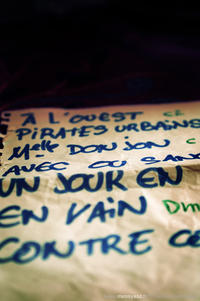 A L'OUEST CE
PIRATES URBAINS
Melle DONJON C
AVEC OU SANS
UN JOUR EN
EN VAIN Dm
CONTRE CO